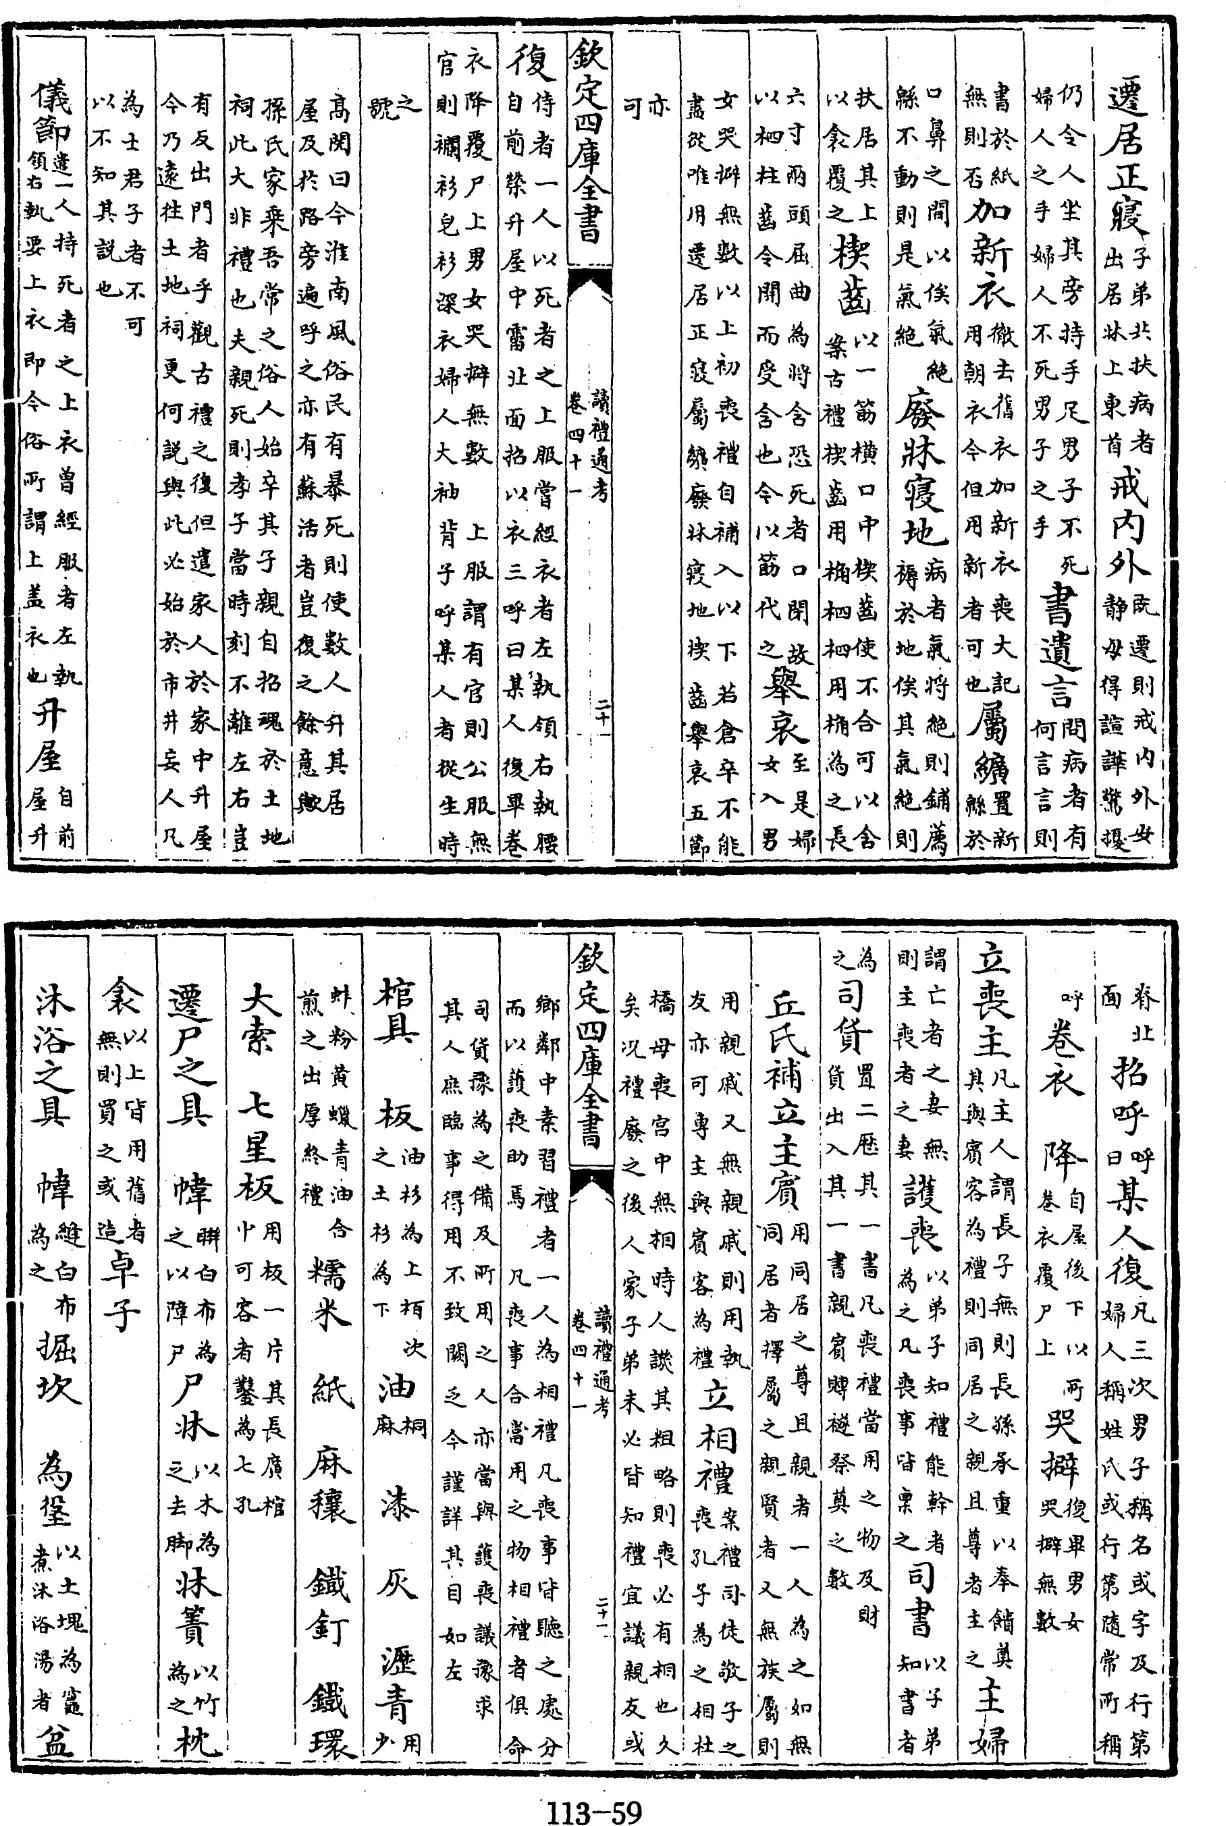 遷居正寢子弟共扶病者出居牀上東首戒內外既遷則戒內外安靜毋得諠譁驚擾
仍令人坐其旁持手足男子不死婦人之手婦人不死男子之手書遺言問病者有何言言則
書於紙無則否加新衣徹去舊衣加新衣喪大記用朝衣今但用新者可也屬纊置新緜於
口鼻之間以俟氣絶緜不動則是氣絶廢牀寢地病者氣將絶則鋪薦褥於地俟其氣絶則
扶居其上以衾覆之楔齒以一筯橫口中楔齒使不合可以含案古禮楔齒用桷柶柶用桷為之長
六寸兩頭屈曲為將含恐死者口閉故以柶柱齒令開而受含也今以筯代之舉哀至是婦女入男
女哭擗無數以上初喪禮自補入以下若倉卒不能盡從唯用遷居正寢屬纊廢牀寢地楔齒舉哀五節
亦可
欽定四庫全書 讀禮通考卷四十一 二十
復侍者一人以死者之上服嘗經衣者左執領右執腰自前榮升屋中霤北面招以衣三呼曰某人復畢卷
衣降覆尸上男女哭擗無數 上服謂有官則公服無官則襴衫皂衫深衣婦人大袖背子呼某人者從生時
之號
高閌曰今淮南風俗民有暴死則使數人升其居屋及於路旁遍呼之亦有蘇活者豈復之餘意歟
孫氏家乘吾常之俗人始卒其子親自招魂於土地祠此大非禮也夫親死則孝子當時刻不離左右豈
有反出門者乎觀古禮之復但遣家人於家中升屋今乃遠往土地祠更何說與此必始於市井妄人凡
為士君子者不可以不知其說也
儀節遣一人持死者之上衣曾經服者左執領右執要上衣即今俗所謂上盖衣也升屋自前屋升
脊北面招呼呼曰某人復凡三次男子稱名或字及行第婦人稱姓氏或行第隨常所稱
呼卷衣 降自屋後下以所卷衣覆尸上哭擗復畢男女哭擗無數
立喪主凡主人謂長子無則長孫承重以奉饋奠其與賓客為禮則同居之親且尊者主之主婦
謂亡者之妻無則主喪者之妻護喪以子弟知禮能幹者為之凡喪事皆稟之司書以子弟知書者
為之司貨置二歷其一書凡喪禮當用之物及財貨出入其一書親賓賻襚祭奠之數
丘氏補立主賓用同居之尊且親者一人為之如無同居者擇屬之親賢者又無族屬則
用親戚又無親戚則用執友亦可專主與賓客為禮立相禮案禮司徒敬子之喪孔子為之相杜
橋母喪宮中無相時人譏其粗略則喪必有相也久矣况禮廢之後人家子弟未必皆知禮宜議親友或
欽定四庫全書 讀禮通考卷四十一 二十一
鄉鄰中素習禮者一人為相禮凡喪事皆聽之處分而以護喪助焉 凡喪事合當用之物相禮者俱命
司貨豫為之備及所用之人亦當與護喪議豫求其人庶臨事得用不致闕乏今謹詳其目如左
棺具 板油杉為上栢次之土杉為下油桐麻 漆 灰 瀝青用少
蚌粉黄蠟青油合煎之出厚終禮糯米 紙 麻穰 鐵釘 鐵環
大索 七星板用板一片其長廣棺中可容者鑿為七孔
遷尸之具 幃聯白布為之以障尸尸牀以木為之去脚牀簀以竹為之枕
衾以上皆用舊者無則買之或造卓子
沐浴之具 幃縫白布為之掘坎 為垼以土塊為竈煮沐浴湯者盆
113-59